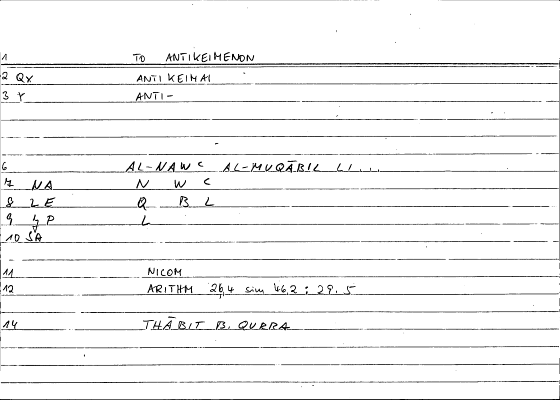 1 TO ANTIKEIMENON
2 Qx ANTIKEIMAI
3 Y ANTI-
6 AL-NAWC AL-MUQĀBIL LI...
7 NA N W C
8 LE Q B L
9 LP L
10 SA
11 NICOM
12 ARITHM 26,4 sim 46,2 : 29.5
14 THĀBIT B. QURRA